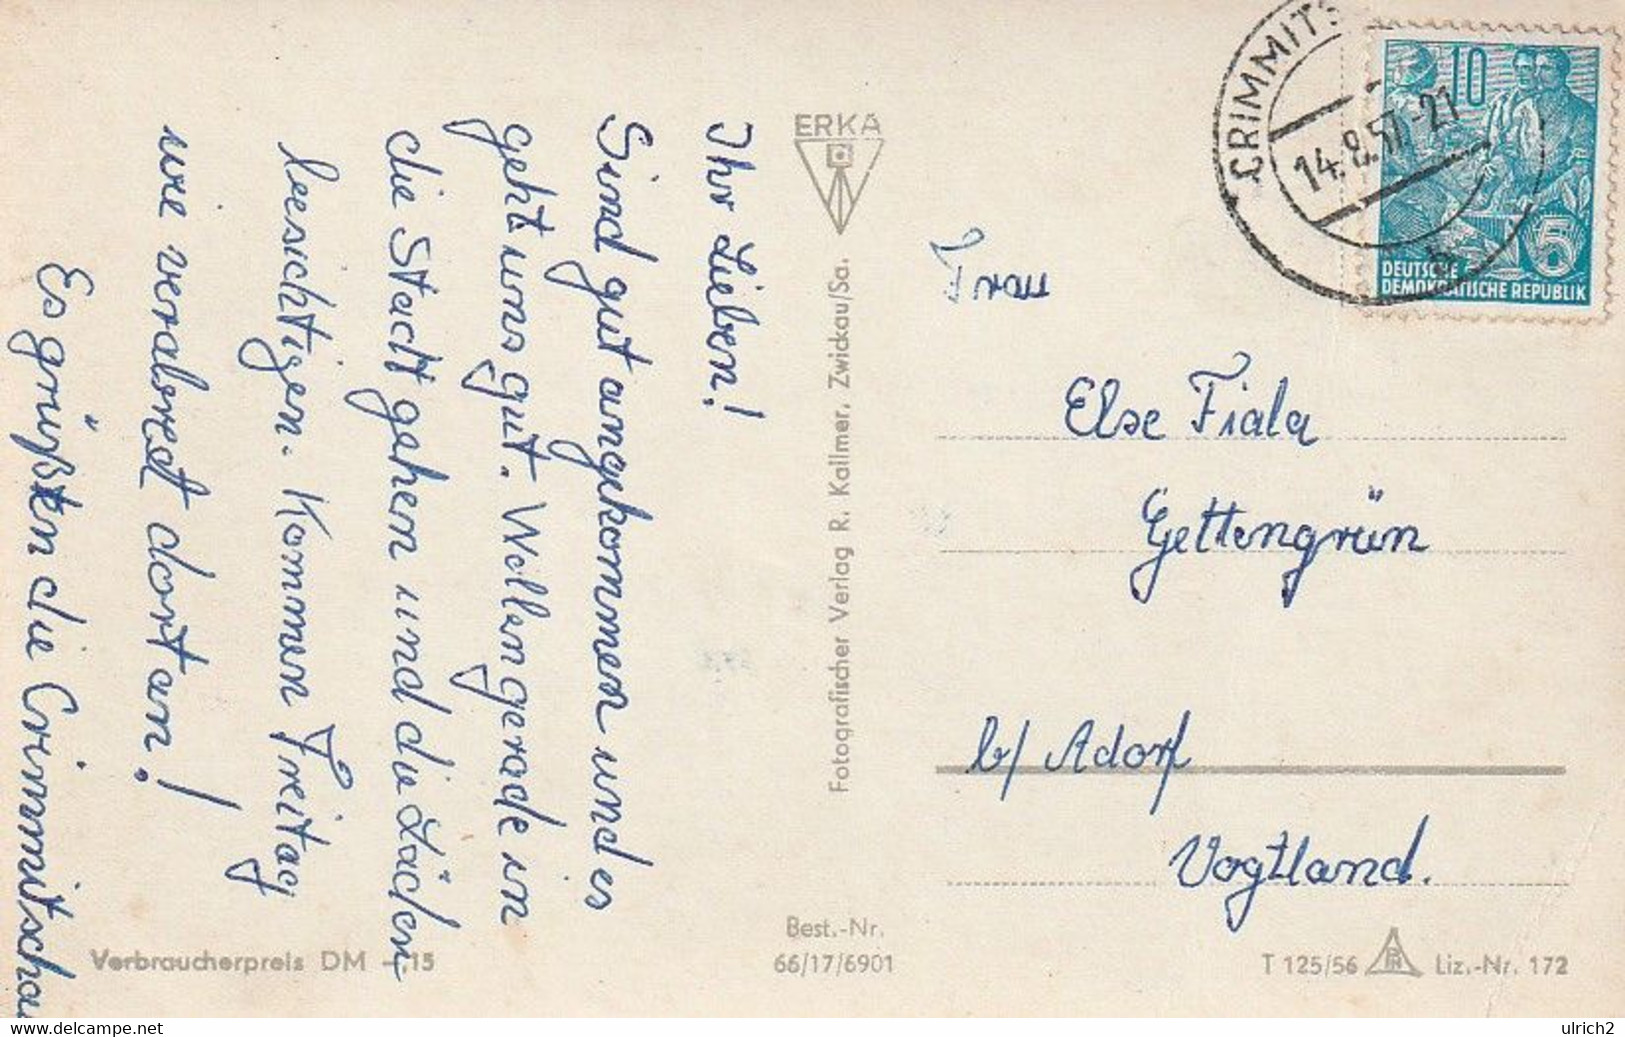 Ihr Lieben!
Sind gut angekommen und es
geht uns gut. Wollen gerade in
die Stadt gehen und die Läden
besichtigen. Kommen Freitag
wie verabredet dort an!
Es grüßen die Crimmitschau
ERKA
Fotografischer Verlag R. Kallmer, Zwickau/Sa.
Verbraucherpreis DM -15
Best.-Nr.
66/17/6901
CRIMMITS
14.8.57.-21
b
10
5
DEUTSCHE
DEMOKRATISCHE REPUBLIK
Frau
Else Fiala
Gettengrün
b/ Adorf
Vogtland.
T 125/56
Liz.-Nr. 172
www.delcampe.net
ulrich2